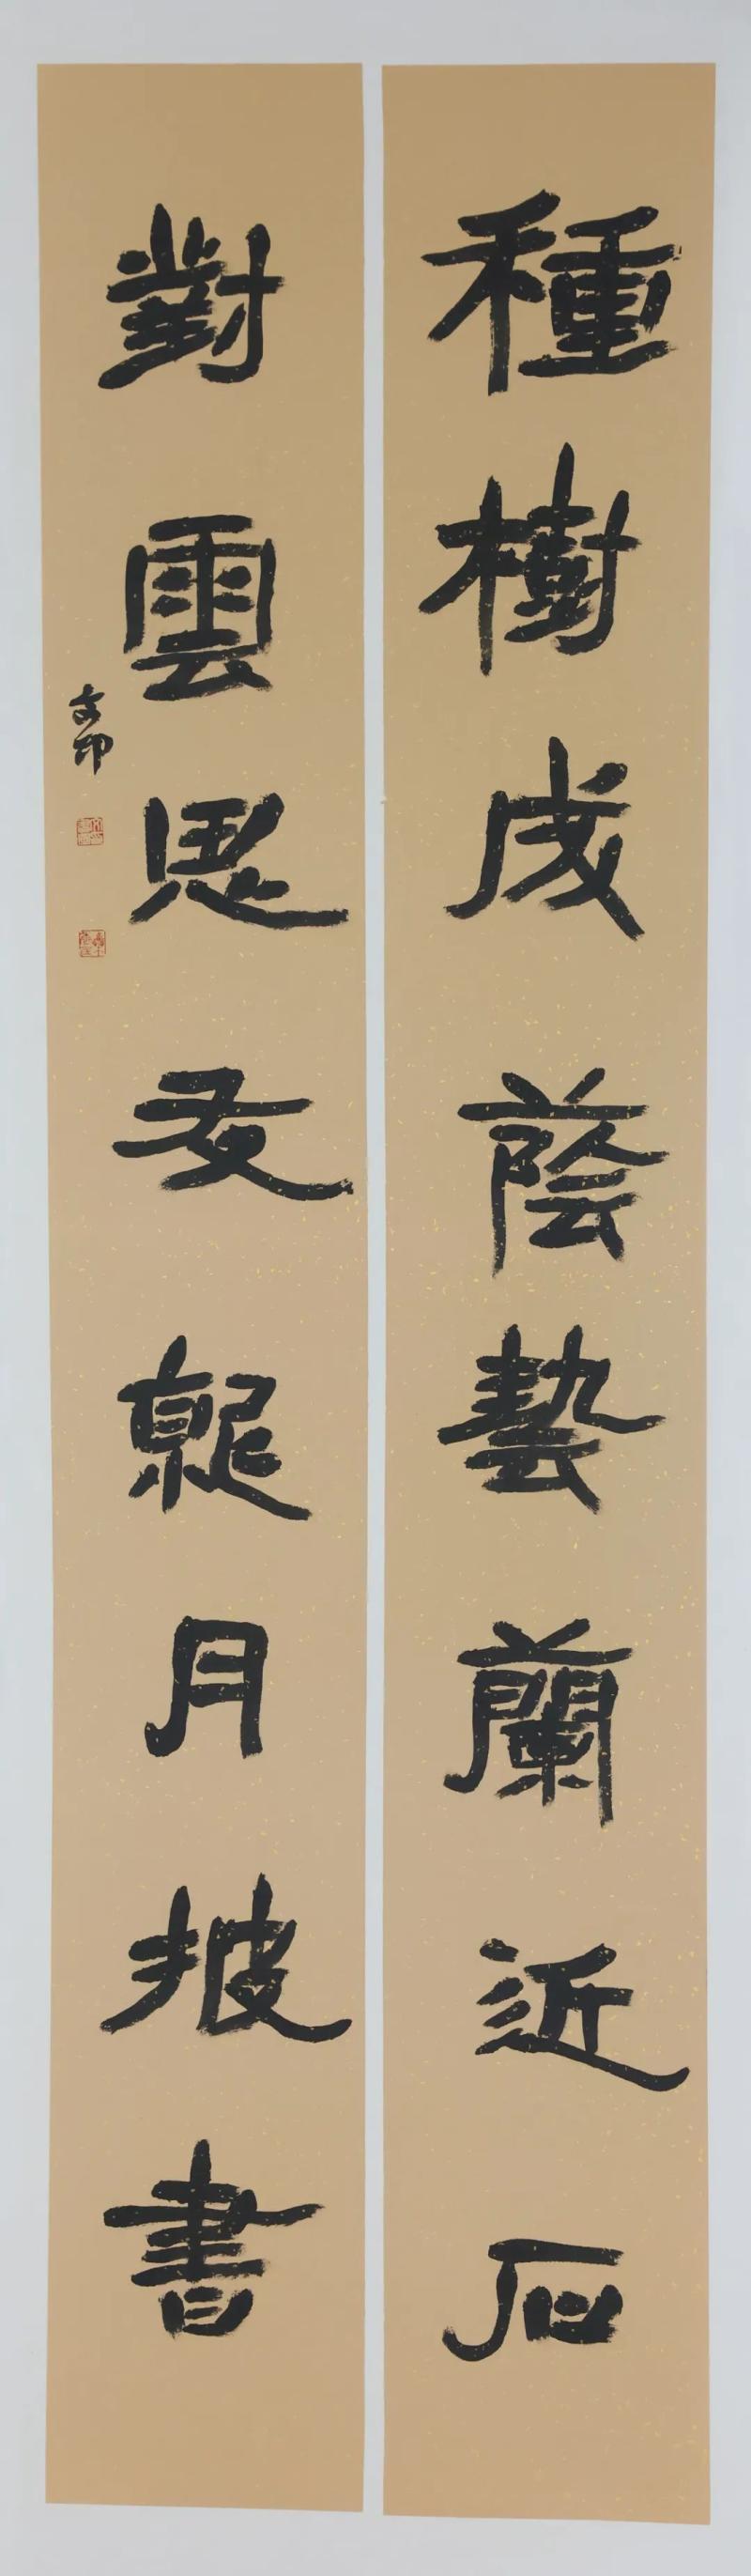 種樹成蔭藝蘭近石
對雲思友就月披書
文印